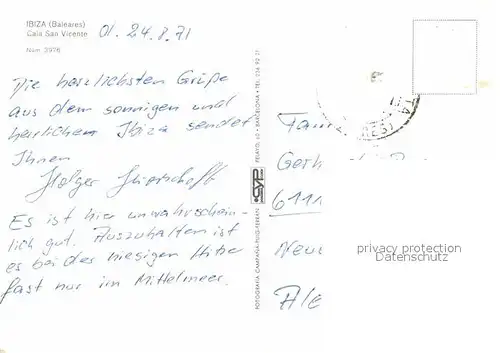 IBIZA (Baleares)
Cala San Vicente
Núm. 3976
d. 24.8.71
Die herzlichsten Grüße
aus dem sonnigen und
herrlichen Ibiza sendet
Ihnen
Holger
Es ist hier unwahrschein-
lich gut. Auszuhalten ist
es bei der riesigen Hitze
fast nur im Mittelmeer.
FOTOGRAFIA CAMPAÑA-PUIG-FERRAN
CYP
PELAYO, - BARCELONA - TEL.
Fam
Gerh
6111
Neu
Ale
privacy protection
Datenschutz